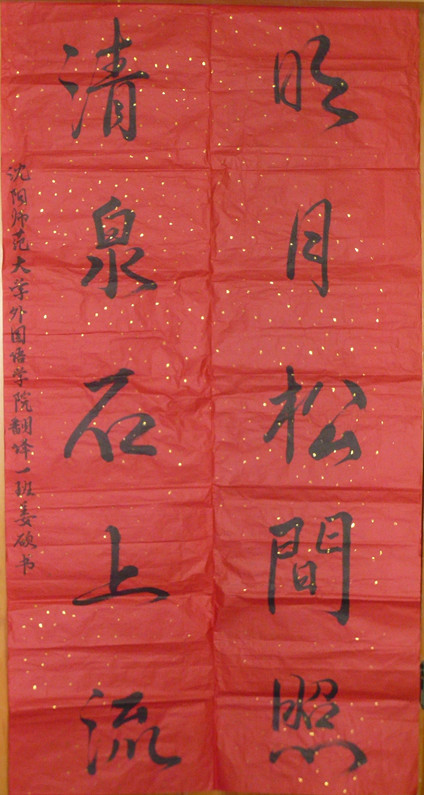 明月松間照
清泉石上流
沈阳师范大学外国语学院翻译一班姜硕书